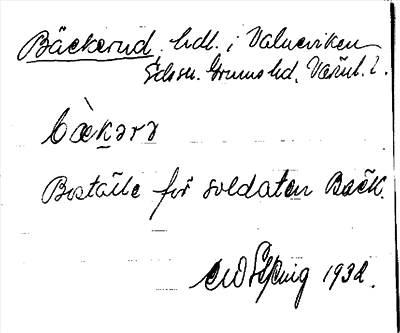 Bäckerud. hdl. i Valneviken
Edssn. Grums hd, Värml. l.
bàkərə
Boställe för soldaten Bäck.
1932.